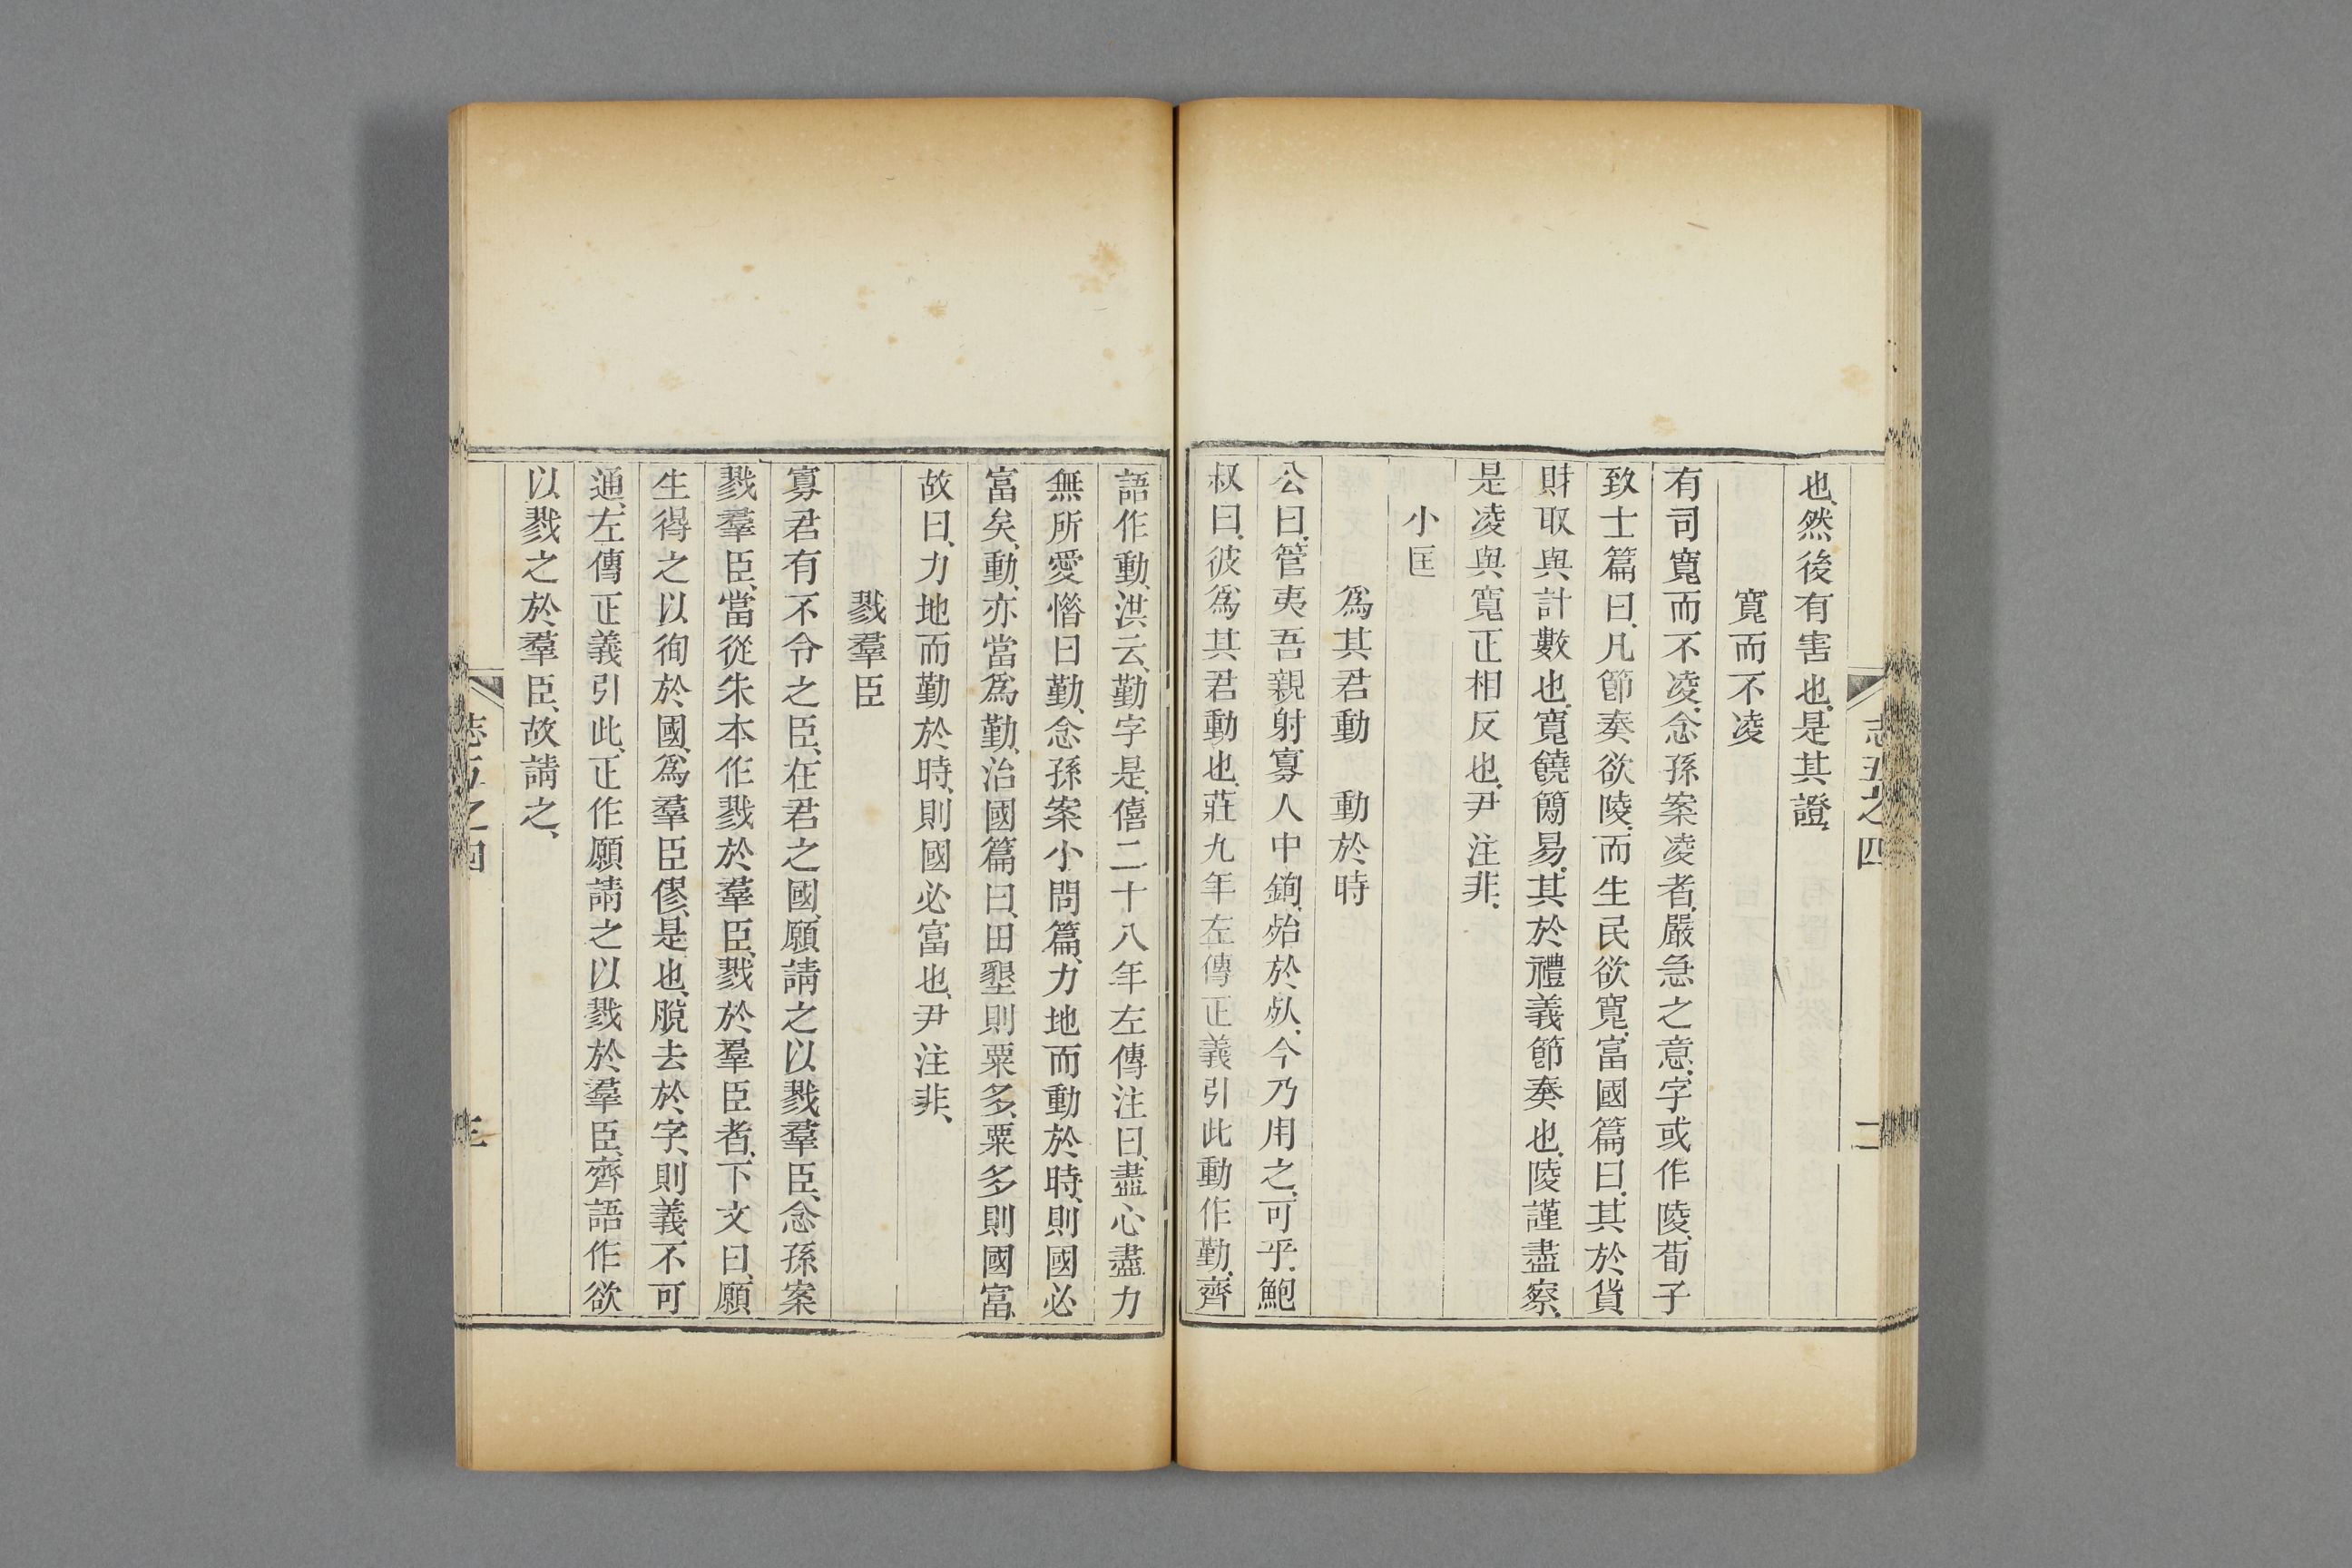 志五之四
二
也然後有害也是其證
寬而不凌
有司寬而不凌念孫案凌者嚴急之意字或作陵荀子
致士篇曰凡節奏欲陵而生民欲寬富國篇曰其於貨
財取與計數也寬饒簡易其於禮義節奏也陵謹盡察
是凌與寬正相反也尹注非
小匡
爲其君動　動於時
公曰管夷吾親射寡人中鉤殆於死今乃用之可乎鮑
叔曰彼爲其君動也莊九年左傳正義引此動作勤齊
語作動洪云勤字是僖二十八年左傳注曰盡心盡力
無所愛惜曰勤念孫案小問篇力地而動於時則國必
富矣動亦當爲勤治國篇曰田墾則粟多粟多則國富
故曰力地而勤於時則國必富也尹注非
戮羣臣
寡君有不令之臣在君之國願請之以戮羣臣念孫案
戮羣臣當從朱本作戮於羣臣戮於羣臣者下文曰願
生得之以徇於國爲羣臣僇是也脫去於字則義不可
通左傳正義引此正作願請之以戮於羣臣齊語作欲
以戮之於羣臣故請之
志五之四
三